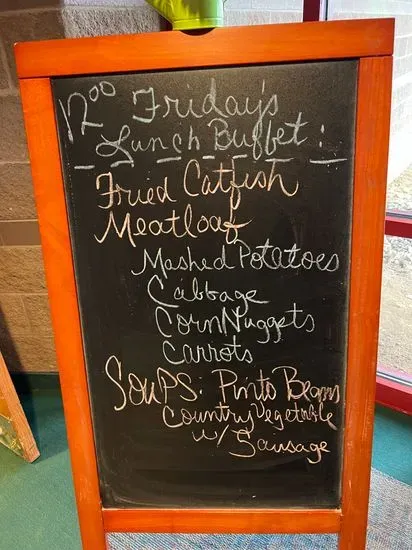 12⁰⁰ Friday's
Lunch Buffet:
Fried Catfish
Meatloaf
Mashed Potatoes
Cabbage
Corn Nuggets
Carrots
Soups: Pinto Beans
Country Vegetable
w/ Sausage